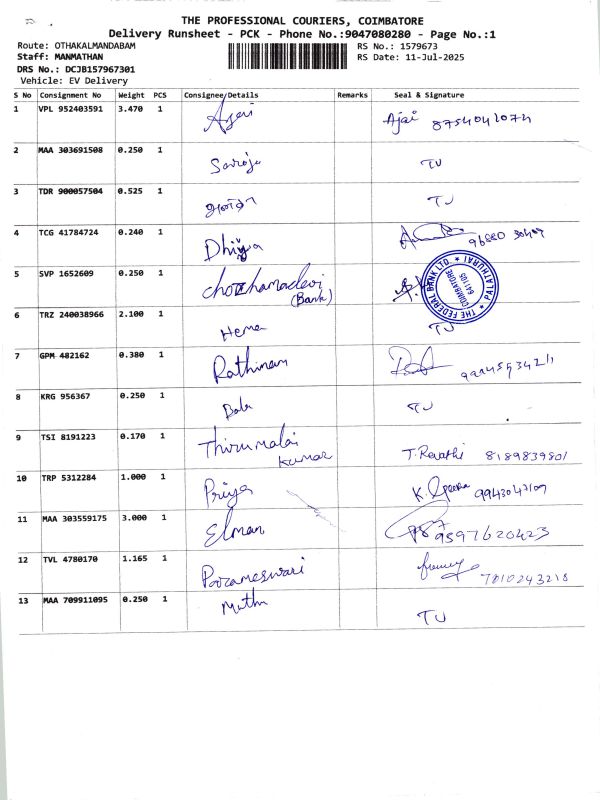 THE PROFESSIONAL COURIERS, COIMBATORE
Delivery Runsheet - PCK - Phone No.:9047080280 - Page No.:1
Route: OTHAKALMANDABAM RS No.: 1579673
Staff: MANMATHAN RS Date: 11-Jul-2025
DRS No.: DCJB157967301
Vehicle: EV Delivery
S No Consignment No Weight PCS Consignee/Details Remarks Seal & Signature
1 VPL 952403591 3.470 1 Ajai Ajai 8754041074
2 MAA 303691508 0.250 1 Saroja TU
3 TDR 900057504 0.525 1 TU
4 TCG 41784724 0.240 1 Dhiya
5 SVP 1652609 0.250 1 Chozhamadevi
(Bank)
THE FEDERAL BANK LTD. * PALATHURAI *
COIMBATORE
641105
6 TRZ 240038966 2.100 1 Hema TU
7 GPM 482162 0.380 1 Rathinam
8 KRG 956367 0.250 1 Bala TU
9 TSI 8191223 0.170 1 Thirumalai
Kumar T. Revathi 8189839801
10 TRP 5312284 1.000 1 Priya K. 9943043109
11 MAA 303559175 3.000 1 Elman 9597620423
12 TVL 4780170 1.165 1 Parameswari 7010243218
13 MAA 709911095 0.250 1 Muthu TU